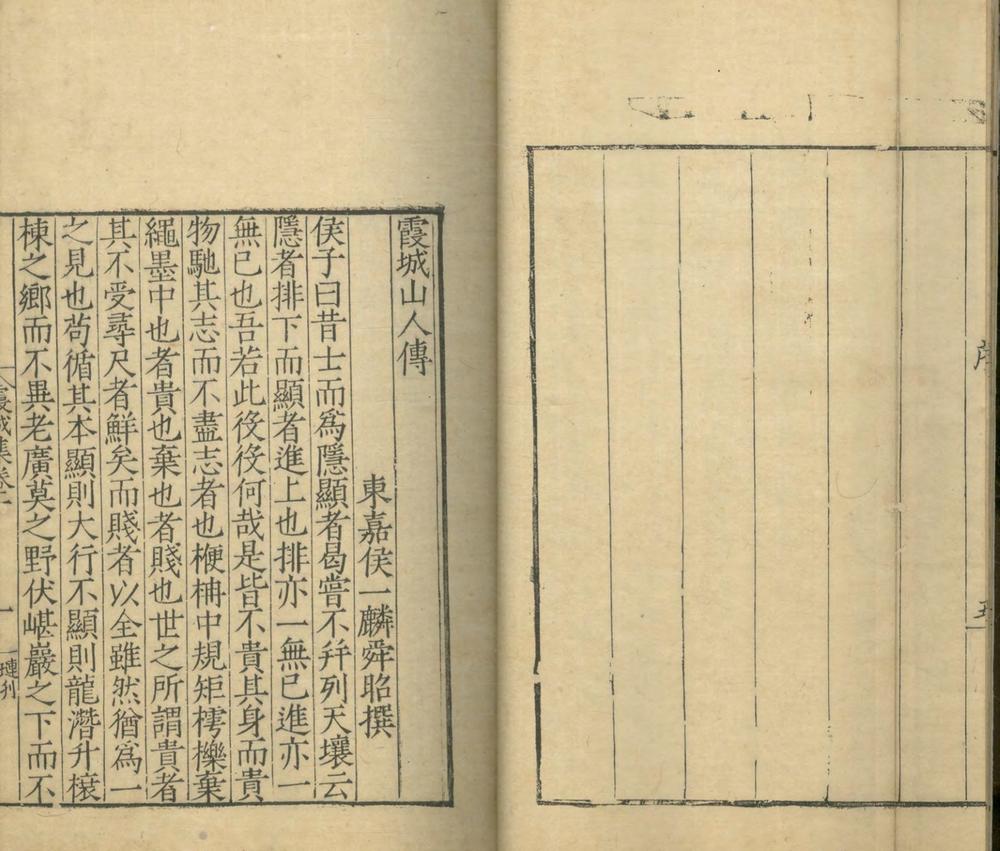 霞城山人傳
東嘉侯一麟舜昭撰
侯子曰昔士而爲隱顯者曷嘗不幷列天壤云
隱者排下而顯者進上也排亦一無已進亦一
無已也吾若此役役何哉是皆不貴其身而貴
物馳其志而不盡志者也楩柟中規矩樗櫟棄
繩墨中也者貴也棄也者賤也世之所謂貴者
其不受尋尺者鮮矣而賤者以全雖然猶爲一
之見也茍循其本顯則大行不顯則龍潛升榱
棟之鄉而不異老廣莫之野伏嵁巖之下而不
霞城集卷二 一